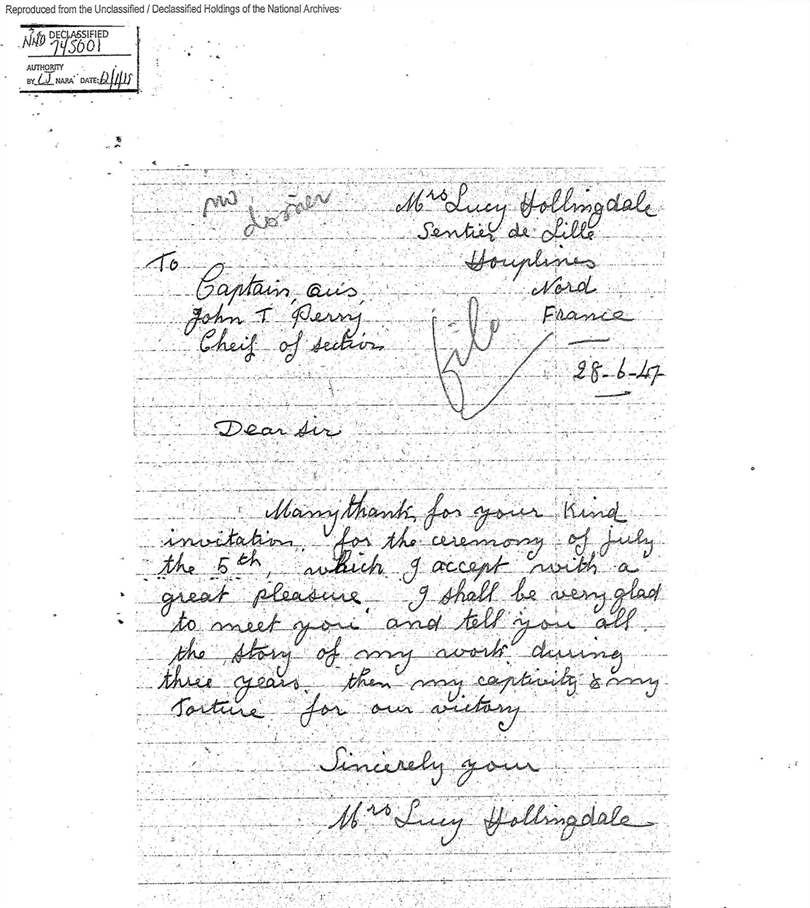 Reproduced from the Unclassified / Declassified Holdings of the National Archives
DECLASSIFIED
NND 745001
AUTHORITY
BY LJ NARA DATE: 12/1/15
Mrs Lucy Hollingdale
Sentier de Lille
Houplines
Nord
France
28-6-47
To
Captain, aus,
John T Perry
Cheif of section
file
Dear Sir
Many thank for your Kind
invitation, for the ceremony of july
the 5th, which I accept with a
great pleasure. I shall be very glad
to meet you and tell you all
the story of my work during
three years. then my captivity & my
Torture for our victory
Sincerely your
Mrs Lucy Hollingdale